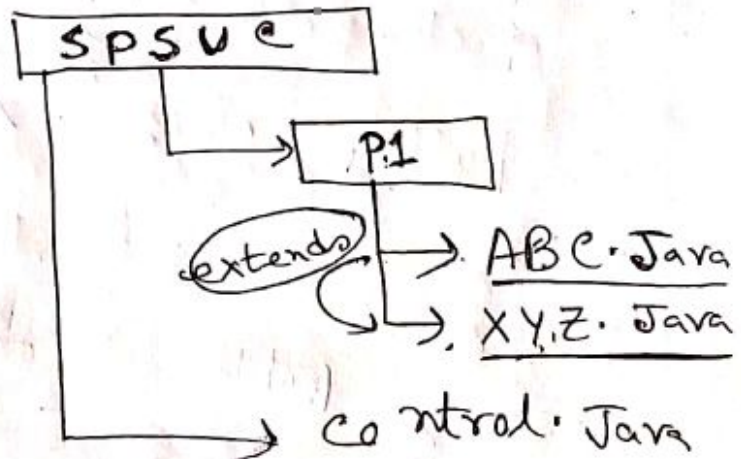 SPSVC
P1
extends
ABC. Java
XYZ. Java
Control. Java